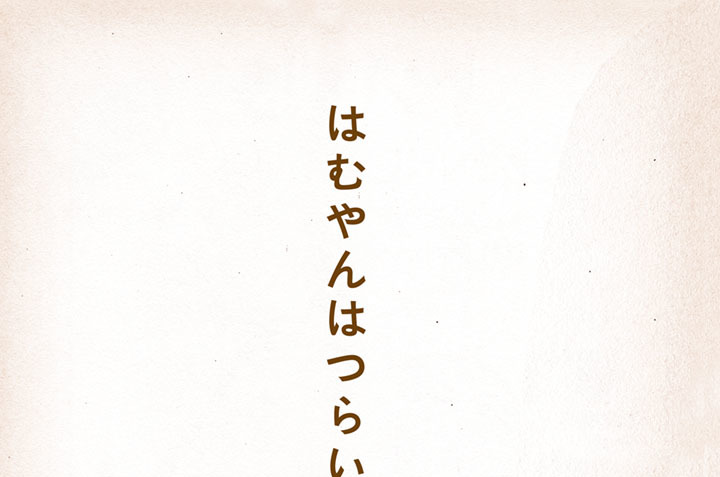 はむやんはつらい